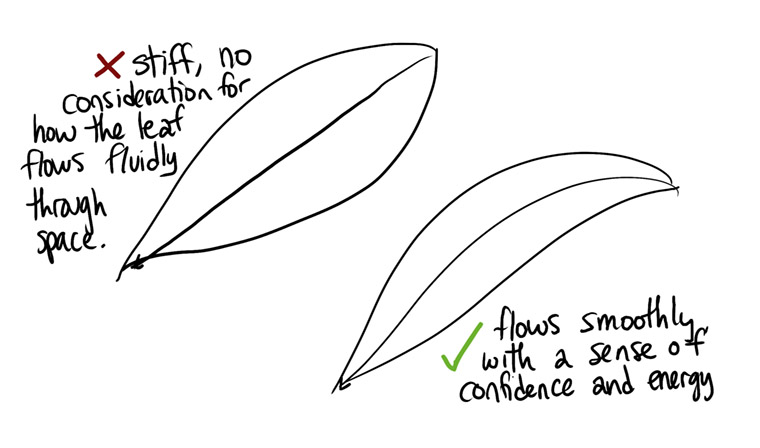 stiff, no
consideration for
how the leaf
flows fluidly
through
space.
flows smoothly
with a sense of
confidence and energy